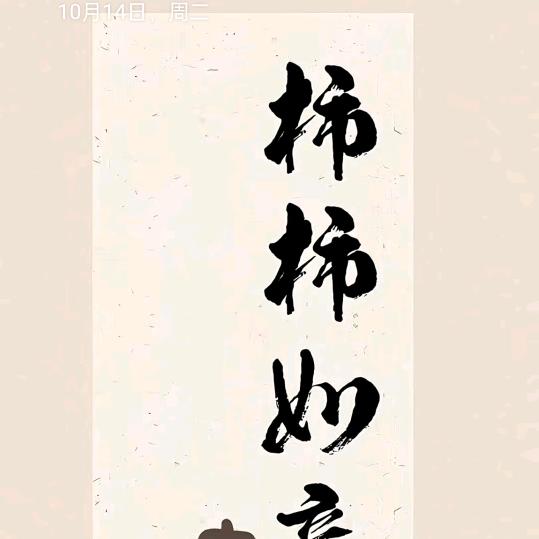 10月14日，周二
柿柿如